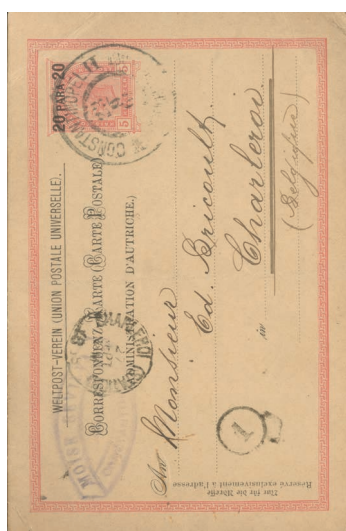 WELTPOST-VEREIN (UNION POSTALE UNIVERSELLE).
CORRESPONDENZ-KARTE (CARTE POSTALE)
(ADMINISTRATION D'AUTRICHE.)
20 PARA 20
5 5
CONSTANTINOPEL II
CHARLEROI
MOISE
An Monsieur
Ed. Bricoult
in Charleroi
(Belgique)
1
Nur für die Adresse
Réservé exclusivement à l'adresse